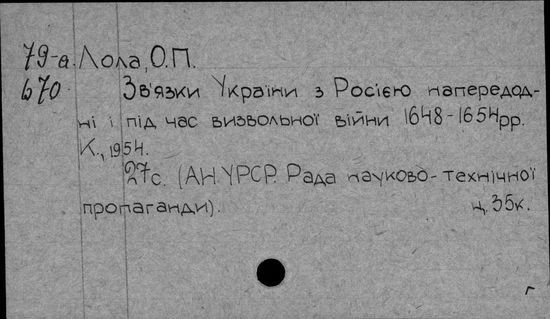 79-а. Лола, О.П.
670 Зв'язки України з Росією напередод-
ні і під час визвольної війни 1648-1654рр.
К., 1954.
27с. (АН УРСР. Рада науково-технічної
пропаганди). ц. 35к.
г